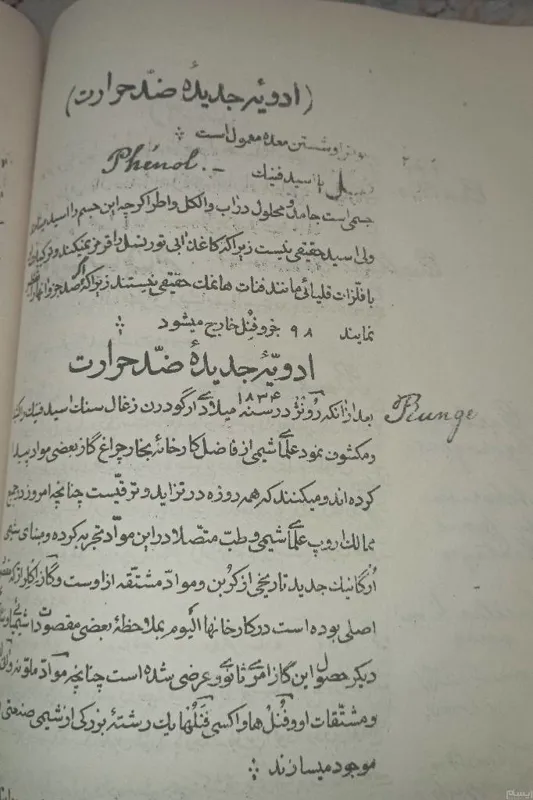 (ادویهٔ جدیدهٔ ضدّ حرارت)
وشستن معده معمول است
Phénol. – یا اسید فنیك
جسمی است جامد و محلول در آب و الکل و اطر اکرچه این جسم را اسید
ولی اسید حقیقی نیست زیرا که کاغذ آبی تورنسل را قرمز نمیکند و ترکیبات
با فلزات قلیائی مانند فنات ها غلت حقیقی نیستند زیرا که اکر صد جزو آنها را
نمایند ۹۸ جزو فنل خارج میشود
ادویهٔ جدیدهٔ ضدّ حرارت
بعد از آنکه رونژ در سنه ۱۸۳۴ میلادی ارگو درن زغال سنك اسید فنیك را
Runge
و مکشوف نمود علمای شیمی از فاضل کارخانهٔ بخار چراغ گاز بعضی مواد پیدا
کرده اند و میکنند که همه روزه در تزاید و ترقیست چنانچه امروز در جمیع
ممالك اروپ علمای شیمی و طب متصلا در این موادّ تجربه کرده و مبنای شیمی
ارگانیك جدید تاریخی از کربن و موادّ مشتقه از اوست و گاز
اصلی بوده است در کارخانها الیوم بملاحظهٔ بعضی مقصودات
دیگر حصول این گاز امری ثانوی و عرضی شده است چنانچه موادّ ملونه
و مشتقات او و فنل ها و اکسی فنلها یك رشتهٔ بزرکی از شیمی صنعتی
موجود میسازند